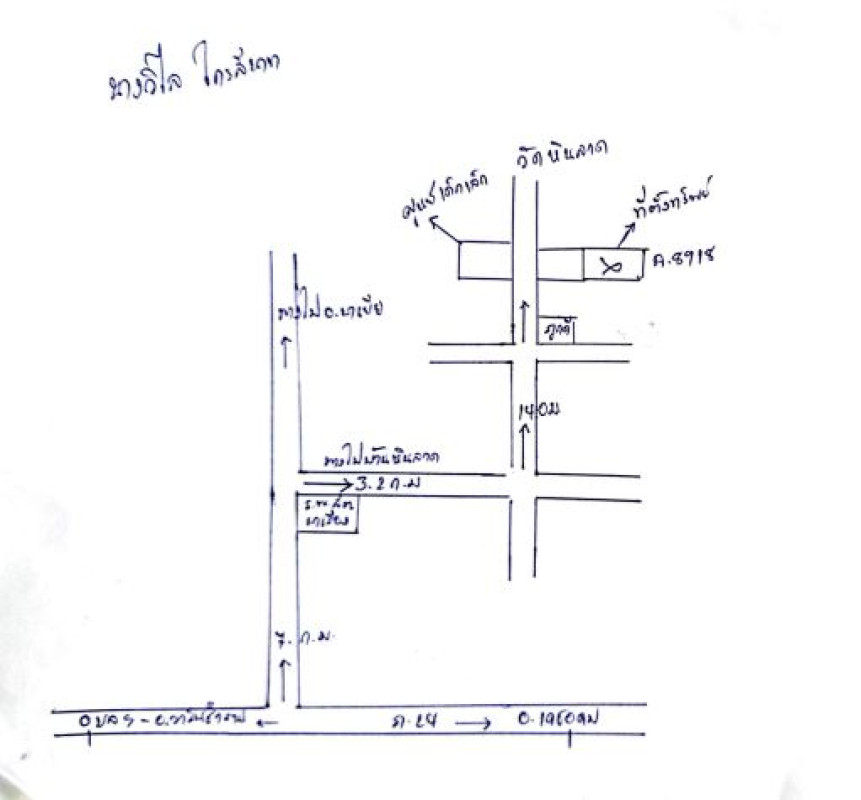 นางวิไล ไกรสีเภท
วัดหินลาด
ศูนย์เด็กเล็ก
ที่ตั้งทรัพย์
ก.8918
ทางไป อ.นาเยีย
กุฏิ
140ม
ทางไปบ้านหินลาด
3.2 ก.ม
ร.พ.สต
นาเยีย
7. ก.ม.
อุบลฯ - อ.วารินชำราบ
ถ.24
อ.เดชอุดม